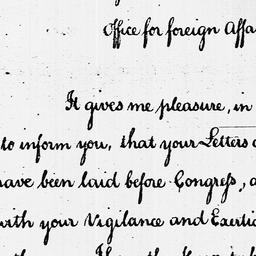 Office for foreign Affa
It gives me pleasure, in
to inform you, that your Letters
have been laid before Congress, a
with your Vigilance and Exertio